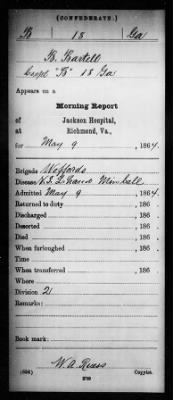 (CONFEDERATE.)
B 18 Ga
B. Bartell
Corpl "B" 18 Ga
Appears on a
Morning Report
of Jackson Hospital,
at Richmond, Va.,
for May 9, 1864.
Brigade Woffords
Disease V.S. L. Minie ball
Admitted May 9, 1864
Returned to duty , 186 .
Discharged , 186 .
Deserted , 186 .
Died , 186 .
When furloughed , 186 .
Time
When transferred , 186 .
Where
Division 2
Remarks:
Book mark:
W. A. Reess
Copyist.